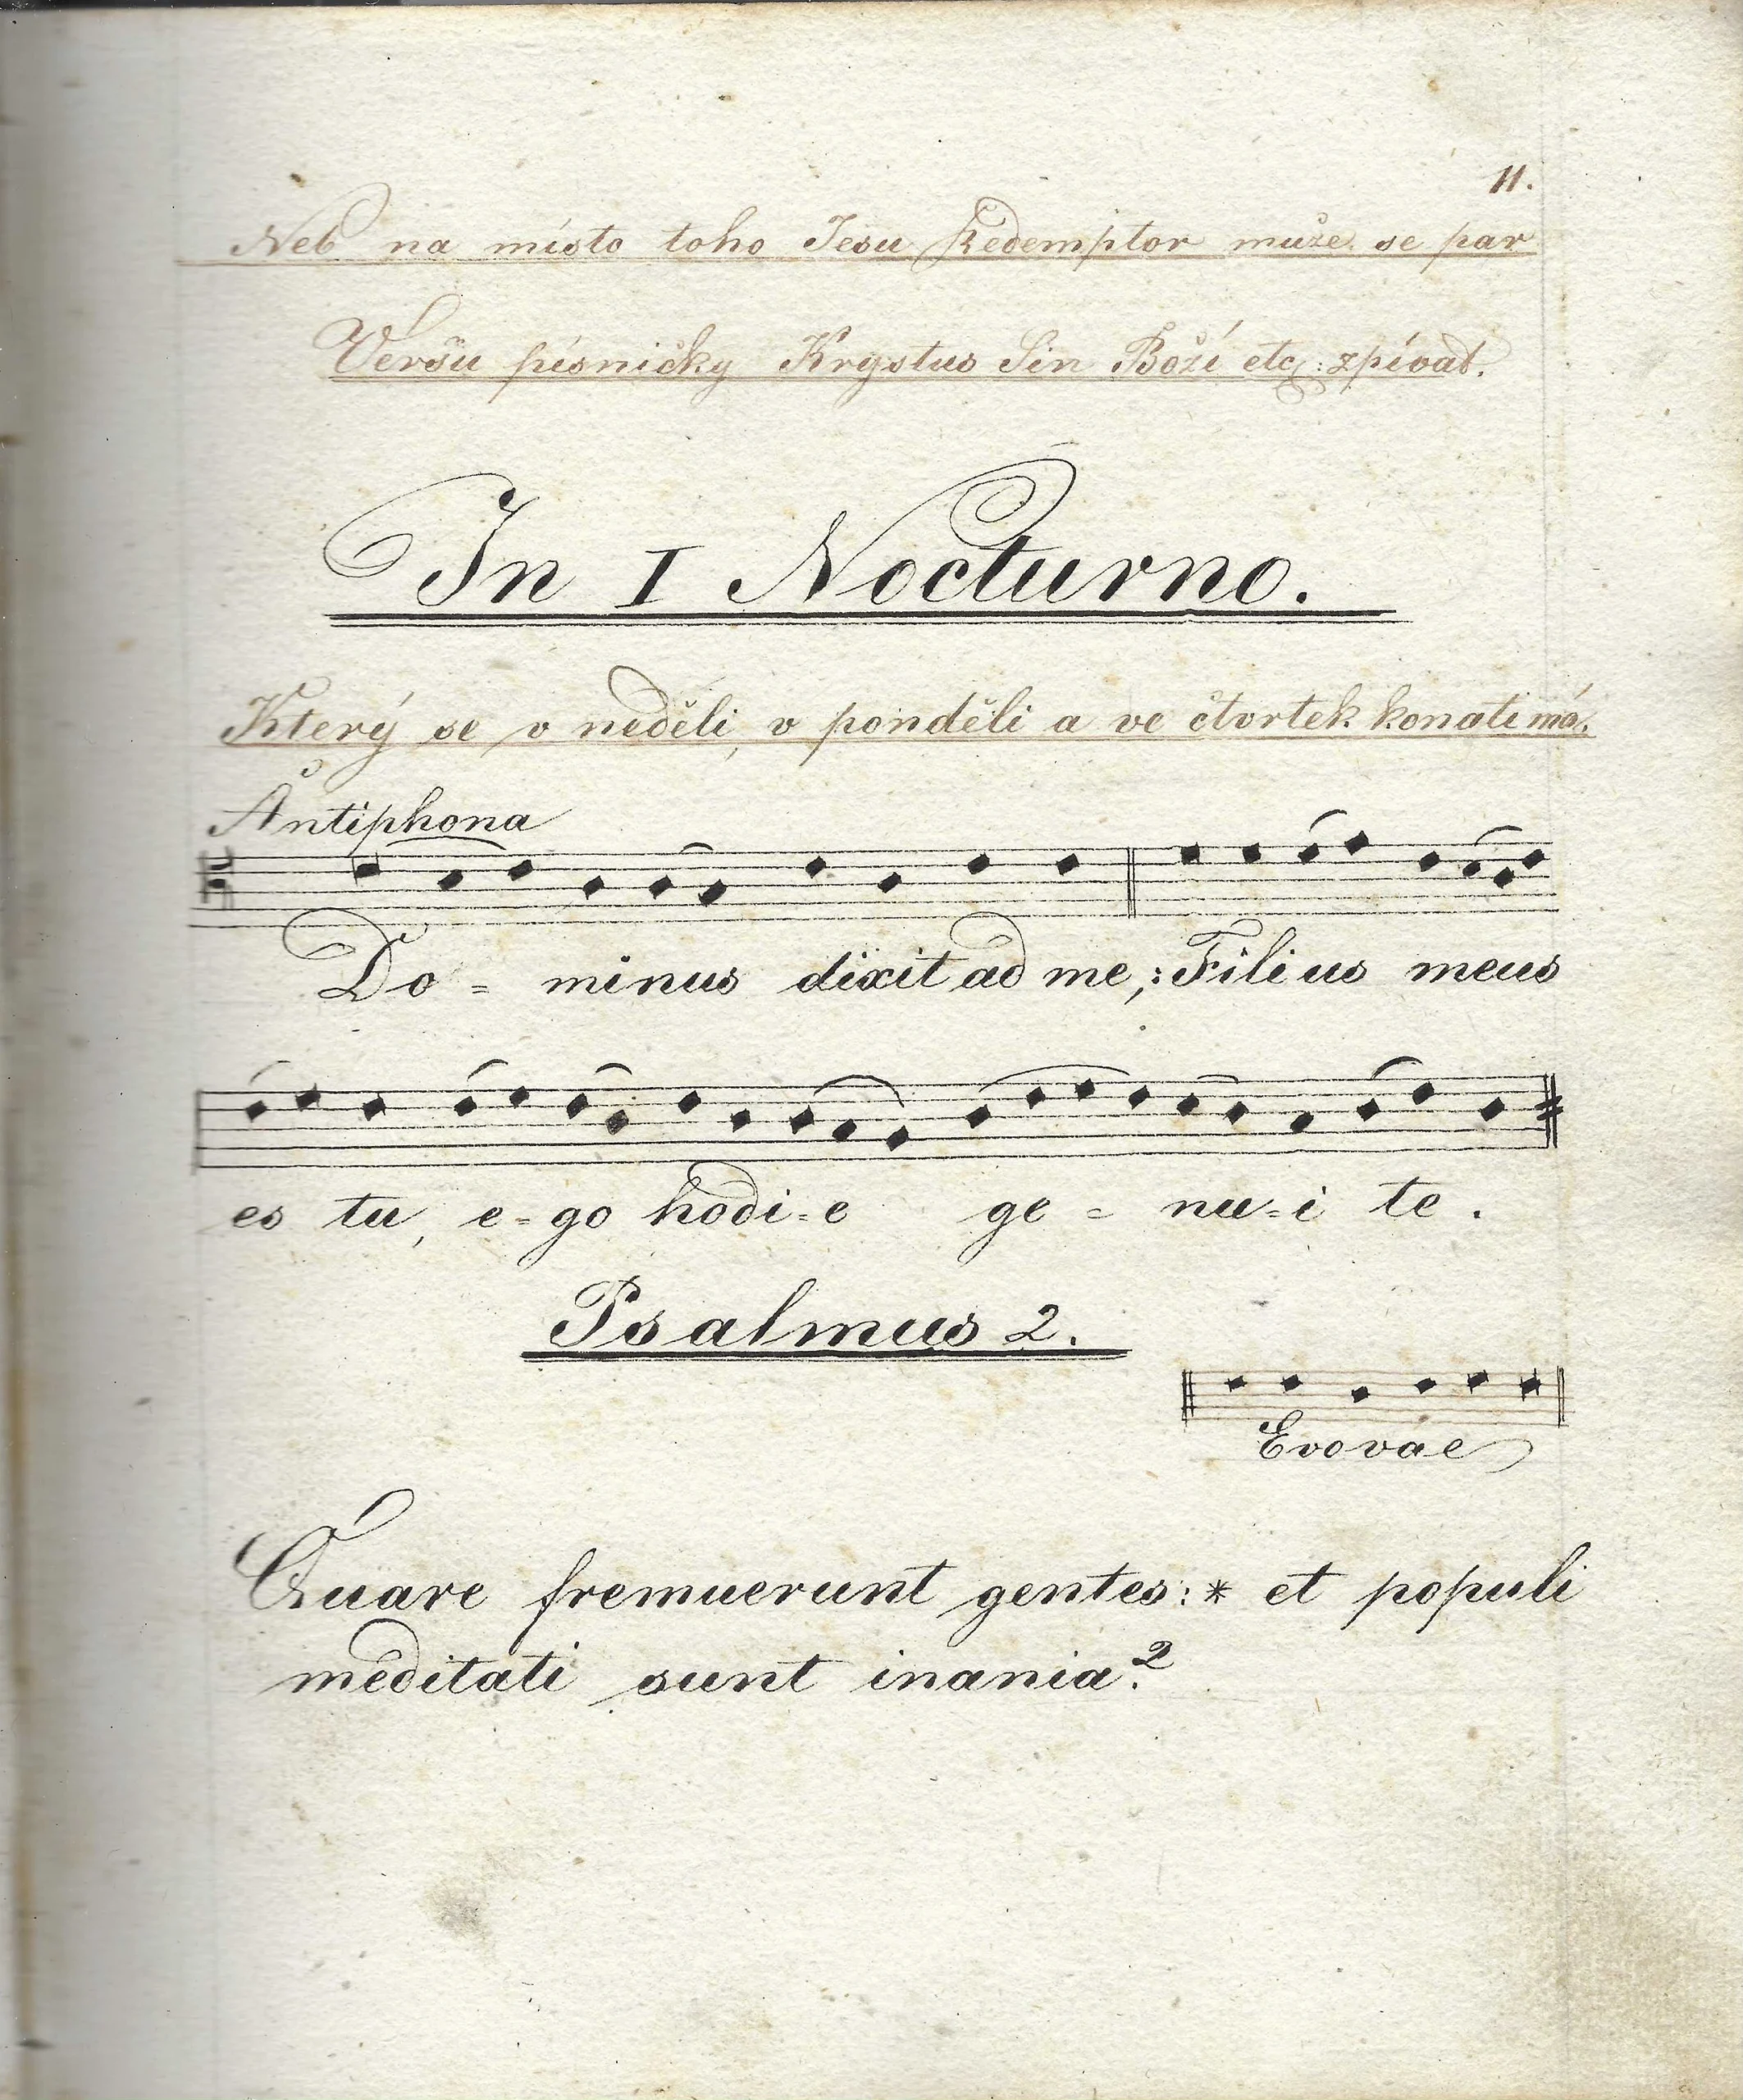 11.
Neb na místo toho Jesu Redemptor može se par
Veršu písničky Krystus Sin Boží etc: zpívat.
In I Nocturno.
Který se v neděli, v ponděli a ve čtvrtek konati má.
Antiphona
Do = minus dixit ad me,: Filius meus
es tu, e=go hodi=e ge = nu=i te.
Psalmus 2.
Evovae
Quare fremuerunt gentes: * et populi
meditati sunt inania?